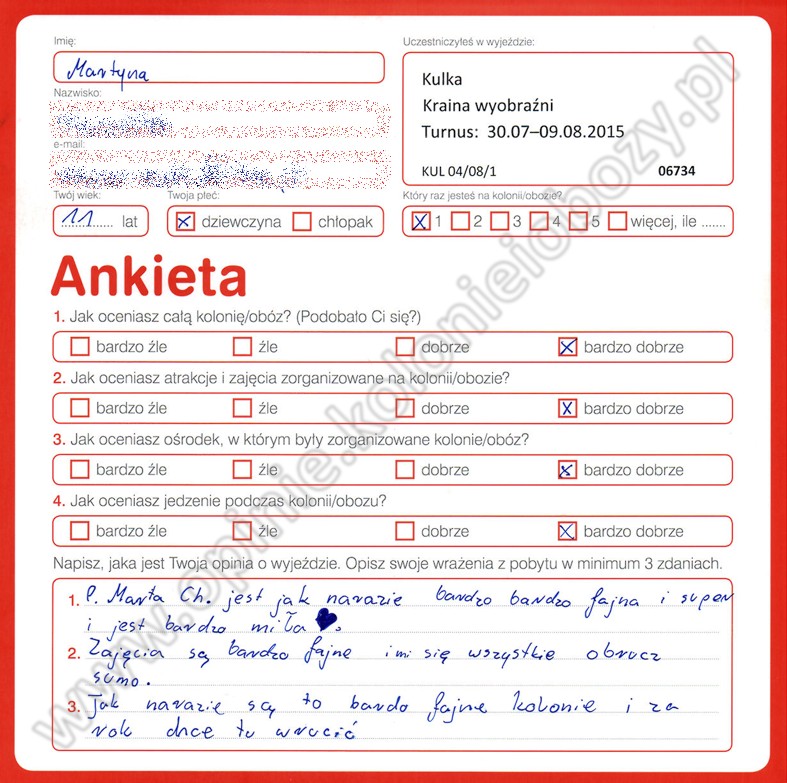 Imię:
Uczestniczyłeś w wyjeździe:
Martyna
Kulka
Kraina wyobraźni
Turnus: 30.07–09.08.2015
KUL 04/08/1 06734
Nazwisko:
e-mail:
Twój wiek:
Twoja płeć:
Który raz jesteś na kolonii/obozie?
11 lat
dziewczyna chłopak
1 2 3 4 5 więcej, ile .......
Ankieta
1. Jak oceniasz całą kolonię/obóz? (Podobało Ci się?)
bardzo źle źle dobrze bardzo dobrze
2. Jak oceniasz atrakcje i zajęcia zorganizowane na kolonii/obozie?
bardzo źle źle dobrze bardzo dobrze
3. Jak oceniasz ośrodek, w którym były zorganizowane kolonie/obóz?
bardzo źle źle dobrze bardzo dobrze
4. Jak oceniasz jedzenie podczas kolonii/obozu?
bardzo źle źle dobrze bardzo dobrze
Napisz, jaka jest Twoja opinia o wyjeździe. Opisz swoje wrażenia z pobytu w minimum 3 zdaniach.
1. P. Marta Ch. jest jak narazie bardzo bardzo fajna i super
i jest bardzo miła ♥.
2. Zajęcia są bardzo fajne i mi się wszystkie obrucz
sumo.
3. Jak narazie są to bardo fajne kolonie i za
rok chce tu wrucić
www.opinie.kolonieiobozy.pl